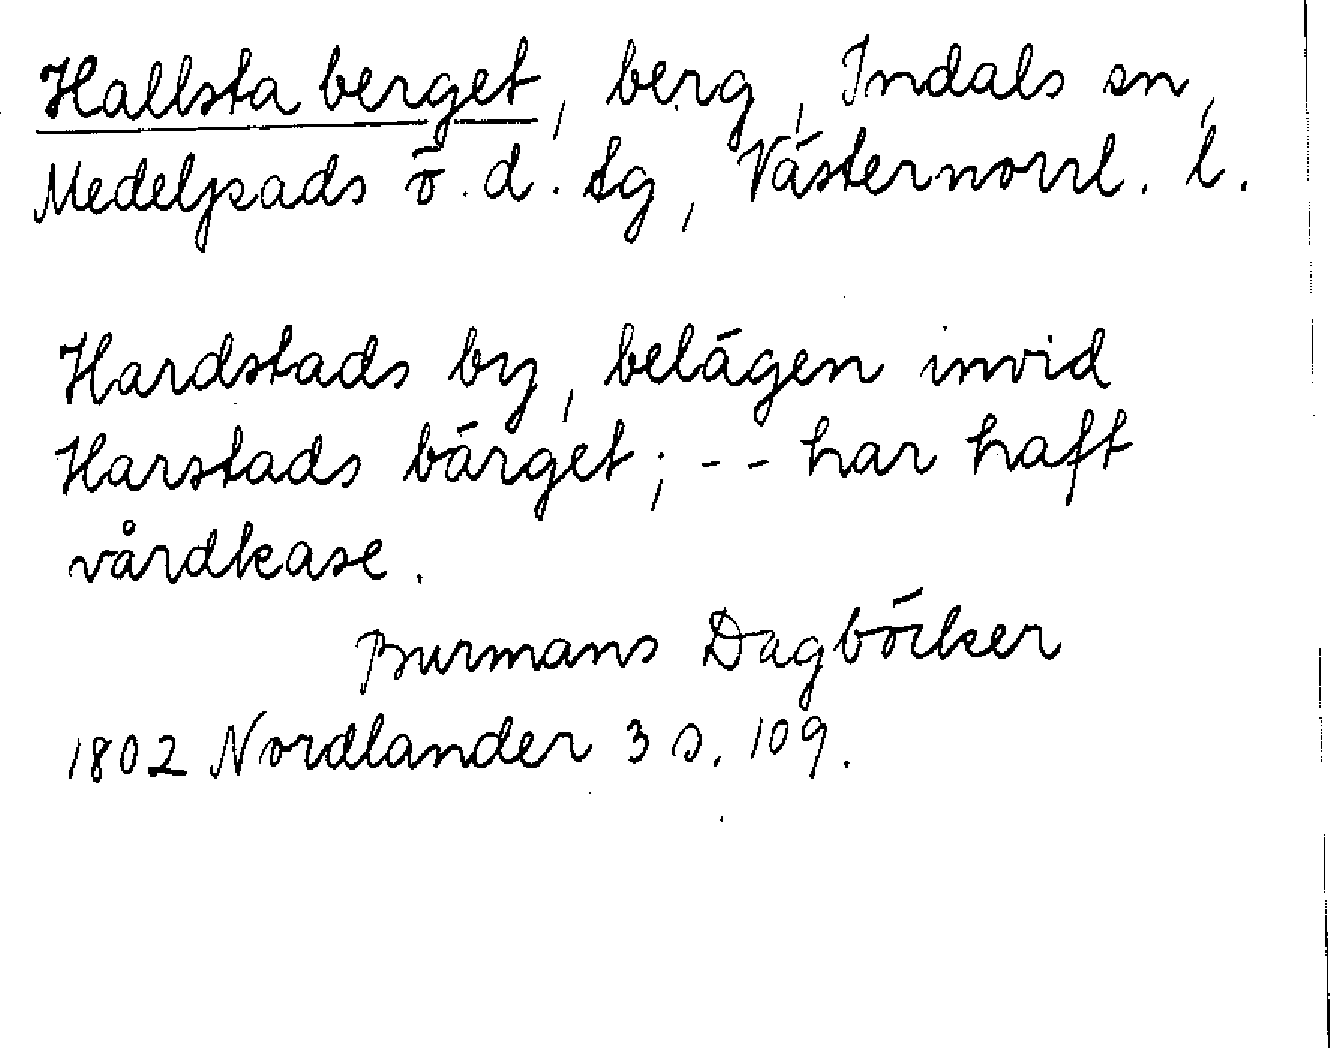 Hallsta berget, berg, Indals sn,
Medelpads ö. d. tg, Västernorrl. l.
Hardstads by, belägen invid
Harstads bärget; -- har haft
vårdkase.
Burmans Dagböcker
1802 Nordlander 3 s. 109.